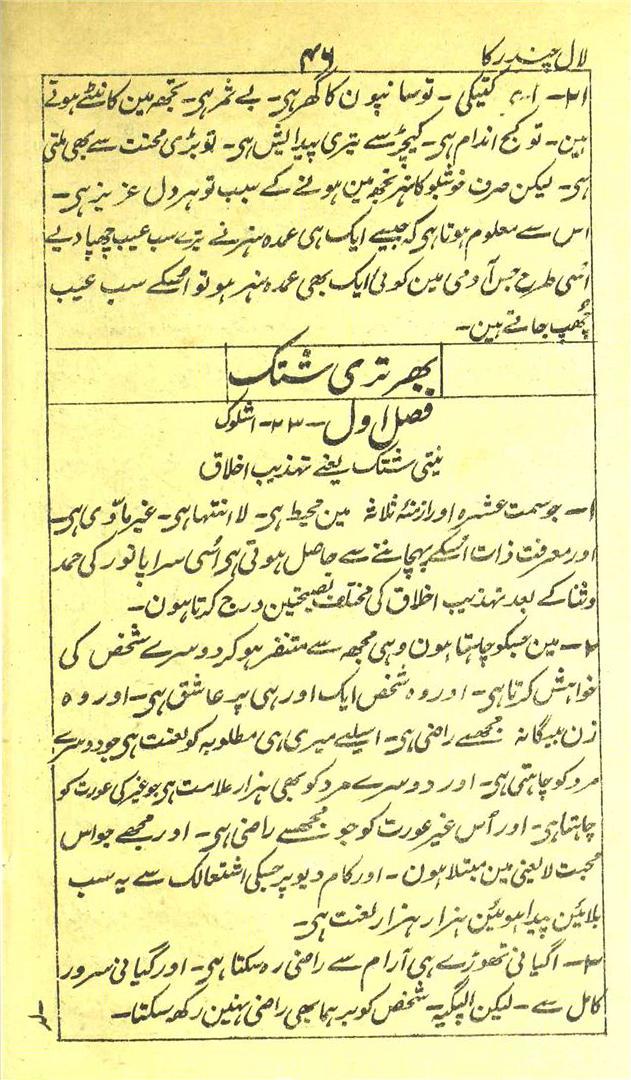 لال چندرکا
۴۶
۲۱- اے کیتکی - تو سانپون کا گھر ہی - بے ثمر ہی - تجھ مین کانٹے ہوتے
ہین - تو کج اندام ہی - کیچڑ سے تیری پیدایش ہی - تو بڑی محنت سے بھی ملتی
ہی - لیکن صرف خوشبو کا ہنر تجھ مین ہونے کے سبب تو ہر دل عزیز ہی -
اس سے معلوم ہوتا ہی کہ جیسے ایک ہی عمدہ ہنر نے تیرے سب عیب چھپا دیے
اُسی طرح جس آدمی مین کوئی ایک بھی عمدہ ہنر ہو تو اسکے سب عیب
چُھپ جاتے ہین -
بھرتری شتک
فصل اول - ۲۳ - اشلوک
نیتی شتک یعنے تہذیب اخلاق
۱- جو سمت عشرہ اور ازمنۂ ثلاثہ مین محیط ہی - لا انتہا ہی - غیر مادّی ہی -
اور معرفت ذات اسکے پہچاننے سے حاصل ہوتی ہی اُسی سراپا نور کی حمد
و ثنا کے بعد تہذیب اخلاق کی مختلف نصیحتین درج کرتا ہون -
۲- مین جسکو چاہتا ہون وہی مجھ سے متنفر ہو کر دوسرے شخص کی
خواہش کرتا ہی - اور وہ شخص ایک اور ہی پر عاشق ہی - اور وہ
زن بیگانہ مجھسے راضی ہی - اسلیے میری ہی مطلوبہ کو لعنت ہی جو دوسرے
مرد کو چاہتی ہی - اور دوسرے مرد کو بھی ہزار علامت ہی جو غیر کی عورت کو
چاہتا ہی - اور اُس غیر عورت کو جو مجھسے راضی ہی - اور مجھے جو اس
محبت لایعنی مین مبتلا ہون - اور کام دیو پر جسکی اشتعالک سے یہ سب
بلائین پیدا ہوئین ہزار ہزار لعنت ہی -
۳- اگیانی تھوڑے ہی آرام سے راضی رہ سکتا ہی - اور گیانی سرور
کامل سے - لیکن الپگیہ شخص کو برہما بھی راضی نہین رکھ سکتا -